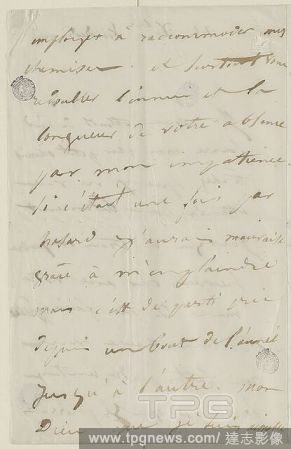 employer à raccommoder mes
chemises. et surtout
l'ennui et la
longueur de votre absence
par mon impatience.
si c'était une fois par
hasard j'aurais mauvaise
grâce à m'en plaindre
mais c'est de parti pris
depuis un bout de l'année
jusqu'à l'autre. mon
Dieu que je suis
TPG
www.tpgnews.com / 達志影像